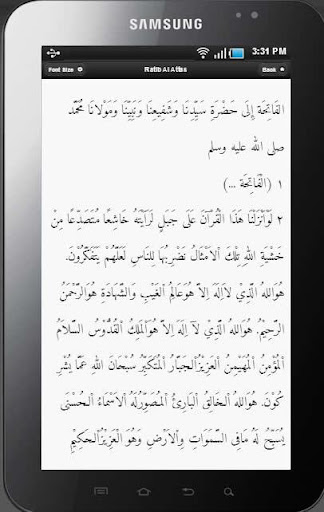 SAMSUNG
3:31 PM
Font Size
Ratib Al Attas
Back
الفَاتِحَة إِلَى حَضْرَةِ سَيِّدِنَا وَشَفِيعِنَا وَنَبِيِّنَا وَمَوْلَانَا مُحَمَّد
صلى الله عليه وسلم
١ (الْفَاتِحَة ...)
٢ لَوْأَنْزَلْنَا هَذَا الْقُرْآنَ عَلَى جَبَلٍ لَرَأَيْتَهُ خَاشِعًا مُتَصَدِّعًا مِنْ
خَشْيَةِ اللهِ تِلْكَ اْلاَمْثَالُ نَضْرِبُهَا لِلنَّاسِ لَعَلَّهُمْ يَتَفَكَّرُوْنَ.
هُوَاللهُ الَّذِيْ لاَإِلَهَ اِلاَّ هُوَعَالِمُ الْغَيْبِ وَالشَّهَادَةِ هُوَالرَّحْمَنُ
الرَّحِيْمُ. هُوَاللهُ الَّذِيْ لآ اِلَهَ اِلاَّ هُوَاْلمَلِكُ اْلقُدُّوْسُ السَّلاَمُ
اْلمُؤْمِنُ اْلمُهَيْمِنُ اْلعَزِيْزُاْلجَبَّارُ اْلمُتَكَبِّرُ سُبْحَانَ اللهِ عَمَّا يُشْرِ
كُوْنَ. هُوَاللهُ اْلخَالِقُ اْلبَارِئُ اْلمُصَوِّرُلَهُ اْلاَسْمَاءُ اْلحُسْنَى
يُسَبِّحُ لَهُ مَافِى السَّمَوَاتِ وَاْلاَرْضِ وَهُوَ اْلعَزِيْزُاْلحَكِيْمُ